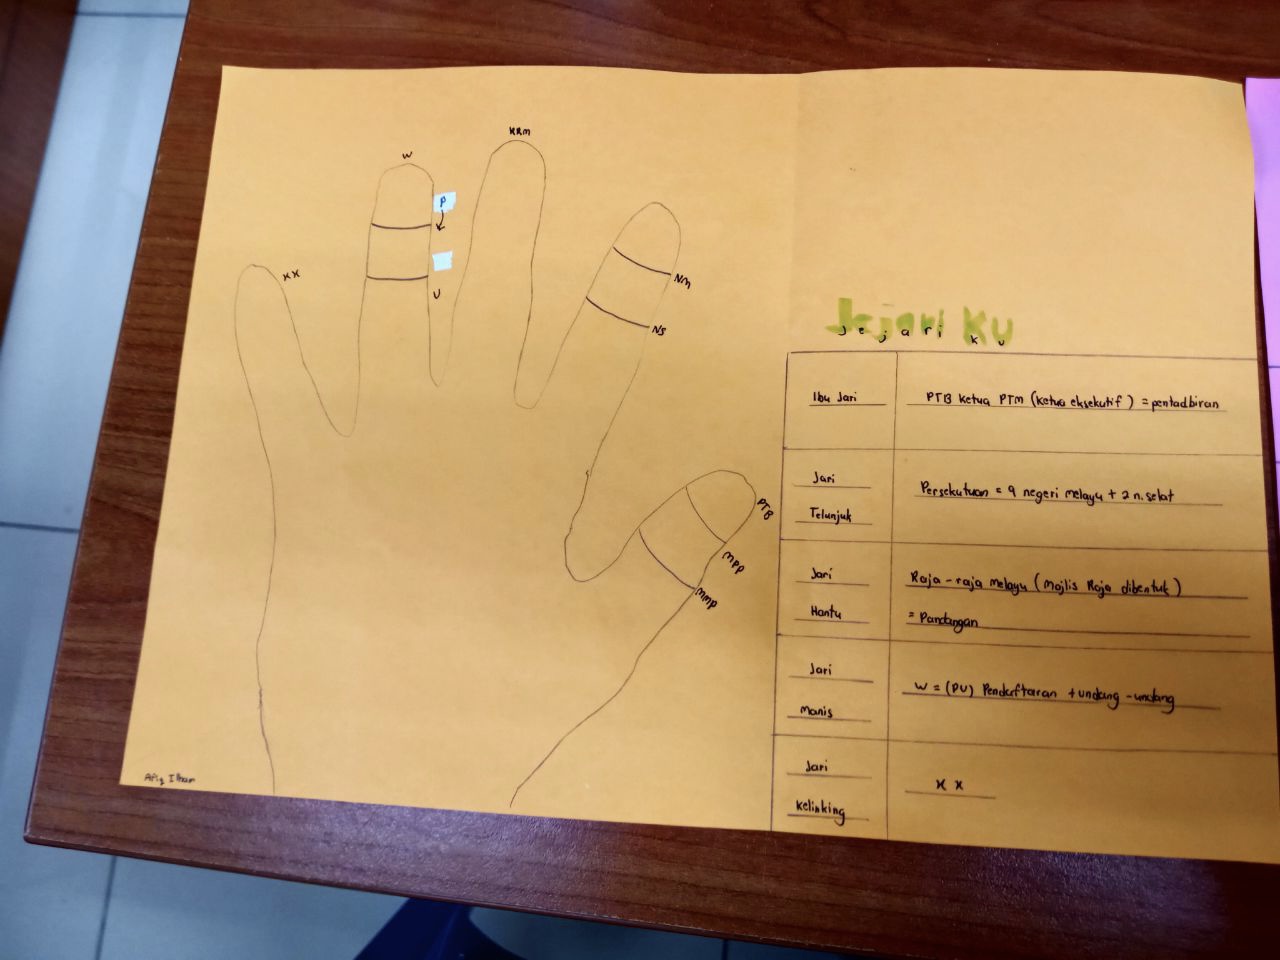 KRM
W
P
XX
U
NM
NS
PTB
MPP
MMP
Afiq Ilham
Jejari Ku
Jejari ku
Ibu Jari
PTB Ketua PTM (Ketua eksekutif) = pentadbiran
Jari
Telunjuk
Persekutuan = 9 negeri melayu + 2 n. selat
Jari
Hantu
Raja-raja melayu (Majlis Raja dibentuk)
= Pandangan
Jari
Manis
W = (PU) Pendaftaran + undang-undang
Jari
Kelinking
X X